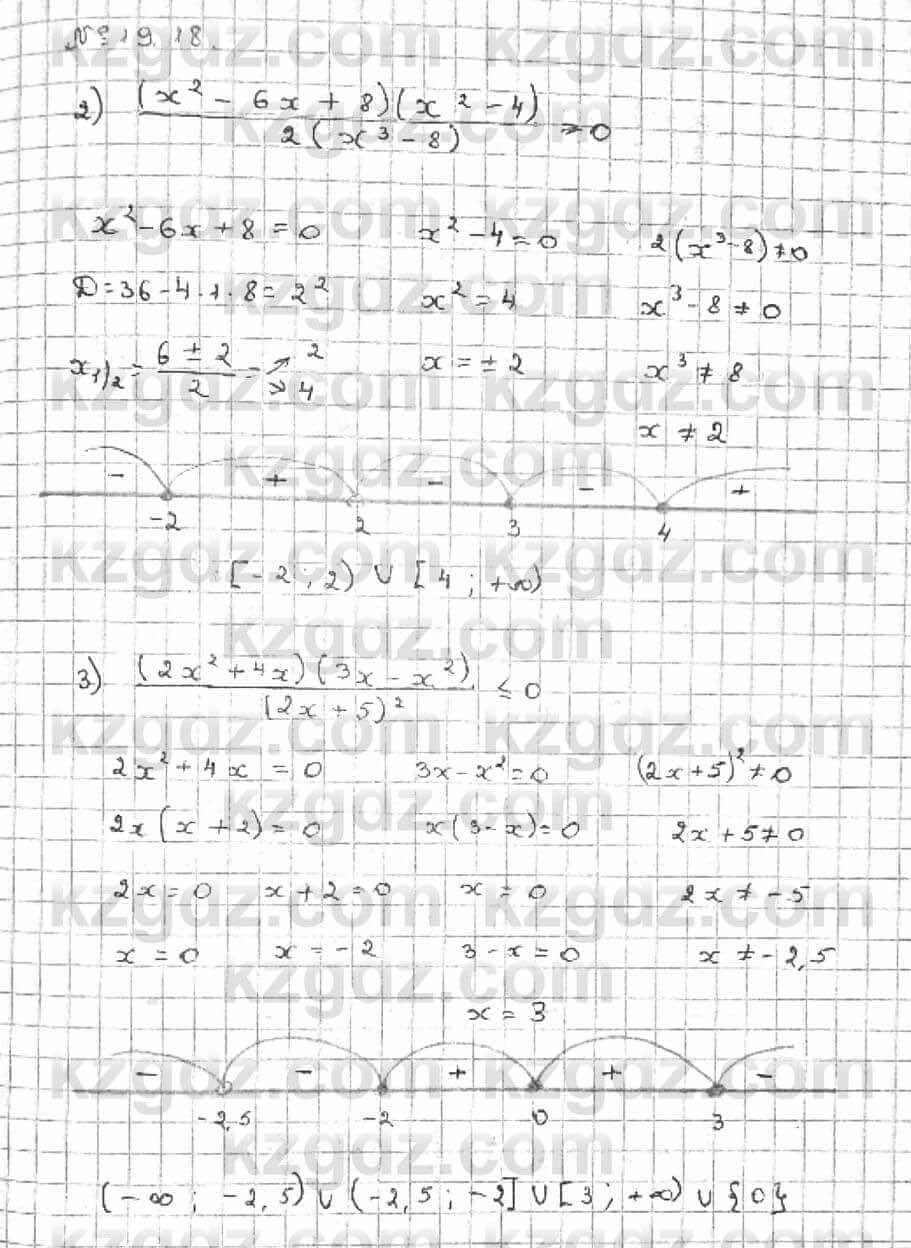 № 19.18.
2) (x² - 6x + 8)(x² - 4) / 2(x³ - 8) ≥ 0
x² - 6x + 8 = 0    x² - 4 = 0    2(x³ - 8) ≠ 0
D = 36 - 4 · 1 · 8 = 2²    x² = 4    x³ - 8 ≠ 0
x₁/₂ = (6 ± 2) / 2 = 2 4    x = ± 2    x³ ≠ 8
x ≠ 2
- + - - +
-2 2 3 4
[-2 ; 2) ∪ [4 ; +∞)
3) (2x² + 4x)(3x - x²) / (2x + 5)² ≤ 0
2x² + 4x = 0    3x - x² = 0    (2x + 5)² ≠ 0
2x(x + 2) = 0    x(3 - x) = 0    2x + 5 ≠ 0
2x = 0    x + 2 = 0    x = 0    2x ≠ -5
x = 0    x = -2    3 - x = 0    x ≠ -2,5
x = 3
- - + + -
-2,5 -2 0 3
(-∞ ; -2,5) ∪ (-2,5 ; -2] ∪ [3 ; +∞) ∪ {0}
kzgdz.com